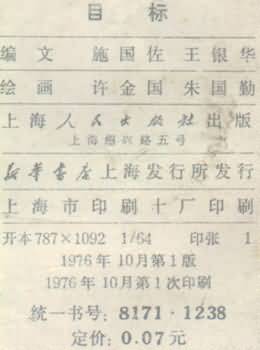 目 标
编 文 施国佐 王银华
绘 画 许金国 朱国勤
上海人民出版社出版
上海绍兴路五号
新华书店上海发行所发行
上海市印刷十厂印刷
开本787×1092 1/64 印张 1
1976年10月第1版
1976年10月第1次印刷
统一书号：8171·1238
定价：0.07元